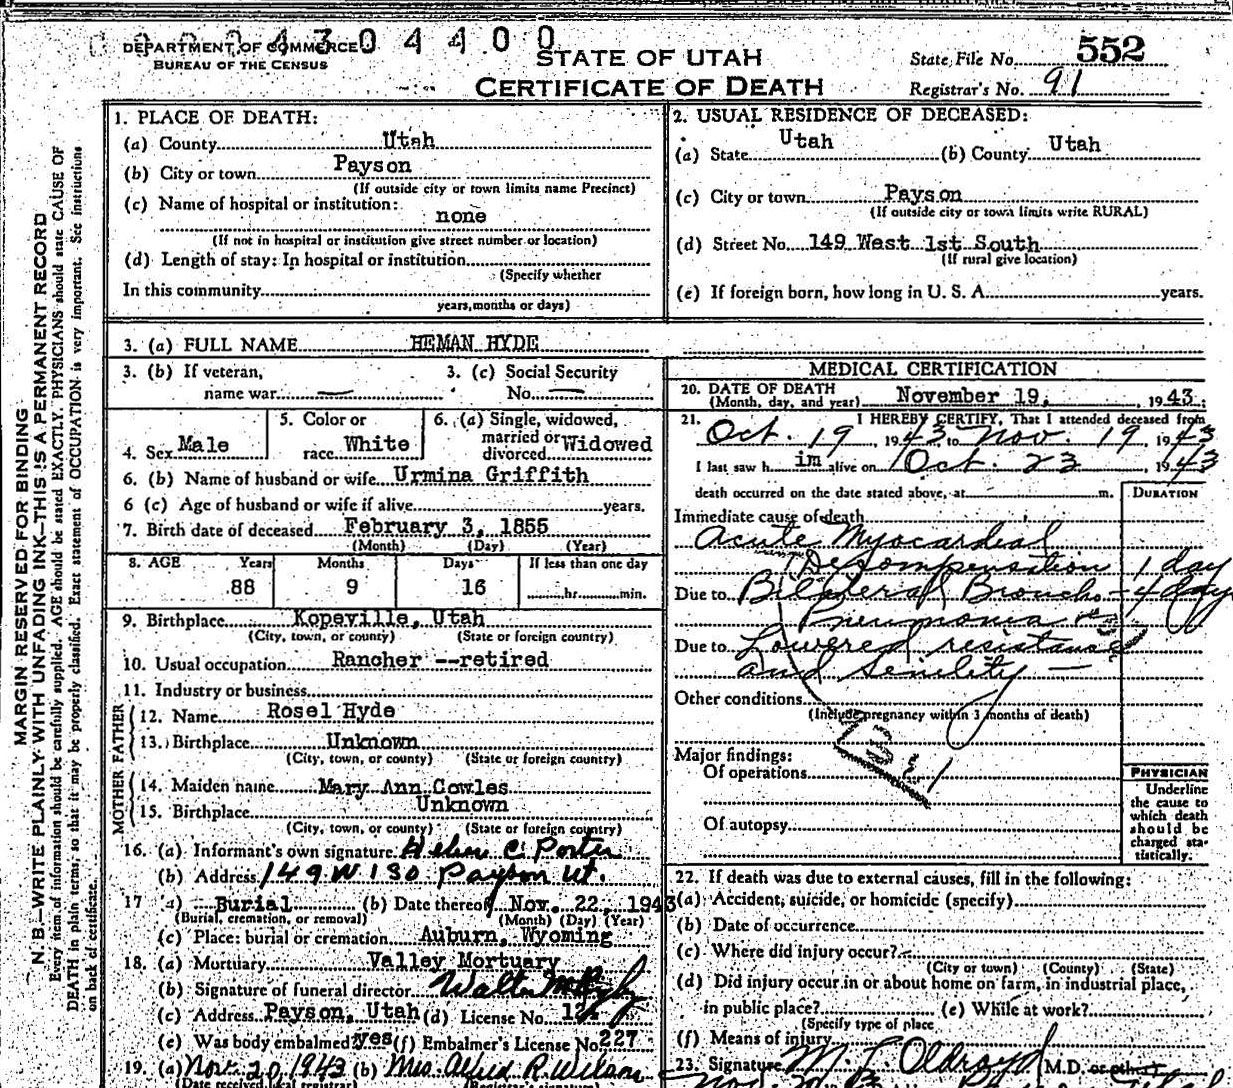 0 0 2 4 3 0 4 4 0 0
DEPARTMENT OF COMMERCE
BUREAU OF THE CENSUS
STATE OF UTAH
CERTIFICATE OF DEATH
State File No. 552
Registrar's No. 91
MARGIN RESERVED FOR BINDING
N. B.—WRITE PLAINLY WITH UNFADING INK—THIS IS A PERMANENT RECORD
Every item of information should be carefully supplied. AGE should be stated EXACTLY. PHYSICIANS should state CAUSE OF
DEATH in plain terms, so that it may be properly classified. Exact statement of OCCUPATION is very important. See instructions
on back of certificate.
1. PLACE OF DEATH:
(a) County Utah
(b) City or town Payson
(If outside city or town limits name Precinct)
(c) Name of hospital or institution:
none
(If not in hospital or institution give street number or location)
(d) Length of stay: In hospital or institution
(Specify whether
In this community
years, months or days)
2. USUAL RESIDENCE OF DECEASED:
(a) State Utah (b) County Utah
(c) City or town Payson
(If outside city or town limits write RURAL)
(d) Street No. 149 West 1st South
(If rural give location)
(e) If foreign born, how long in U. S. A. years.
3. (a) FULL NAME HEMAN HYDE
3. (b) If veteran,
name war —
3. (c) Social Security
No. —
4. Sex Male
5. Color or
race White
6. (a) Single, widowed,
married or
divorced Widowed
6. (b) Name of husband or wife Urmina Griffith
6 (c) Age of husband or wife if alive years.
7. Birth date of deceased February 3, 1855
(Month) (Day) (Year)
8. AGE Years Months Days If less than one day
88 9 16 hr. min.
9. Birthplace Kopeville, Utah
(City, town, or county) (State or foreign country)
10. Usual occupation Rancher --retired
11. Industry or business
FATHER
12. Name Rosel Hyde
13. Birthplace Unknown
(City, town, or county) (State or foreign country)
MOTHER
14. Maiden name Mary Ann Cowles
15. Birthplace Unknown
(City, town, or county) (State or foreign country)
16. (a) Informant's own signature Heber C Porter
(b) Address 149 W 1 SO Payson Ut.
17 a) Burial (b) Date thereof Nov. 22, 1943
(Burial, cremation, or removal) (Month) (Day) (Year)
(c) Place: burial or cremation Auburn, Wyoming
18. (a) Mortuary Valley Mortuary
(b) Signature of funeral director Walter
(c) Address Payson, Utah (d) License No.
(e) Was body embalmed? yes (f) Embalmer's License No. 227
19. (a) Nov. 20, 1943 (b) Mrs. Alfred R. Wilson
(Date received local registrar) (Registrar's signature)
MEDICAL CERTIFICATION
20. DATE OF DEATH
(Month, day, and year) November 19, 1943;
21. I HEREBY CERTIFY, That I attended deceased from
Oct. 19, 1943 to Nov. 19 1943
I last saw him alive on Oct. 23, 1943
death occurred on the date stated above, at m.
DURATION
Immediate cause of death
Acute Myocardial
Decompensation 1 day
Due to Bilateral Broncho- 4 days
Pneumonia
Due to Lowered resistance
and Senility —
Other conditions
(Include pregnancy within 3 months of death)
Major findings:
Of operations
Of autopsy
PHYSICIAN
Underline
the cause to
which death
should be
charged sta-
tistically.
22. If death was due to external causes, fill in the following:
(a) Accident, suicide, or homicide (specify)
(b) Date of occurrence
(c) Where did injury occur?
(City or town) (County) (State)
(d) Did injury occur in or about home on farm, in industrial place,
in public place? (e) While at work?
(Specify type of place
(f) Means of injury
23. Signature M. L. Oldroyd M.D. or other